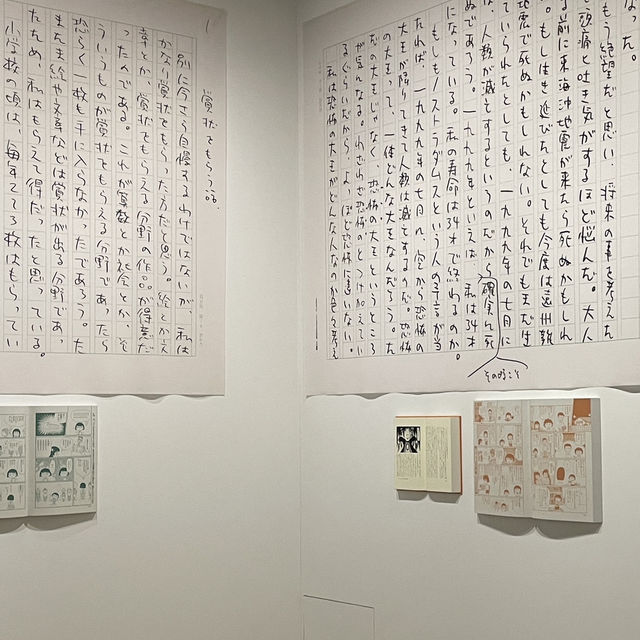 なった。
もう絶望だと思い、将来の事を考えた
頭痛と吐き気がするほど悩んだ。大人
る前に東海沖地震が来たら死ぬかもしれ
。もし生き延びたとしても今度は遠州灘
地震で死ぬかもしれない。それでもまだ生
ていられたとしても、一九九九年の七月に
人類が滅亡するというのだから確実に死
そのころ
ぬであろう。一九九九年といえば、私は34才
になっている。私の寿命は34才で終わるのか。
もしもノストラダムスという人の予言が当
たれば、一九九九年の七月に、空から恐怖の
大王が降りてきて人類は滅亡するのだ。恐怖
の大王って、一体どんな大王なんだろう。た
だの大王じゃなく〝恐怖の〟大王というところ
が気になる。わざわざ恐怖のとつけ加えてい
るぐらいだから、よっぽど恐怖に違いない。
私は恐怖の大王がどんな人なのか色々考え
1
賞状をもらう話。
別に今さら自慢するわけではないが、私は
かなり賞状をもらった方だと思う。絵とか文
章とか、賞状をもらえる分野の作品が得意だ
ったのである。これが算数とか社会とか、そ
ういうものが賞状をもらえる分野であったら
恐らく一枚も手に入らなかったであろう。た
またま絵や文章などは賞状が出る分野であっ
たため、私はもらえて得だったと思っている。
小学校の頃は、毎年2〜3枚はもらってい